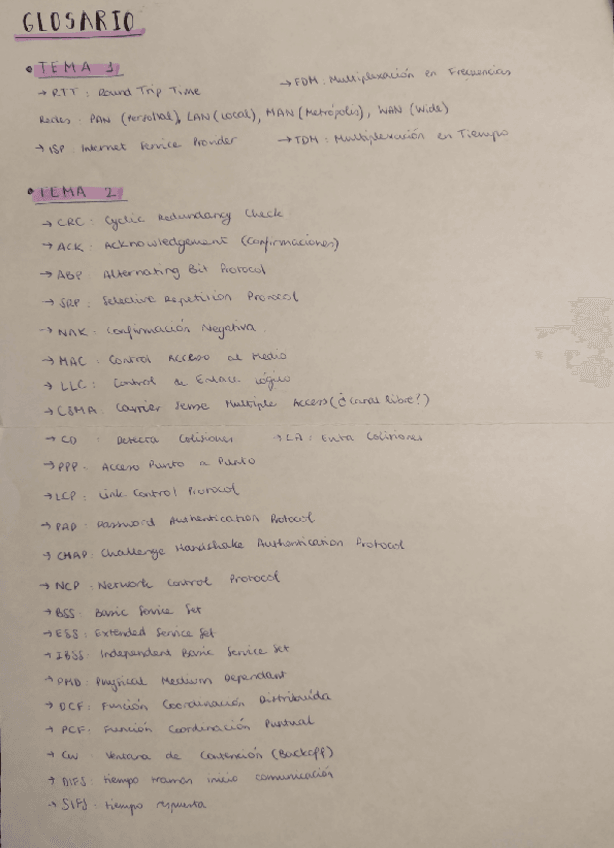 GLOSARIO
• TEMA 1
→ RTT : Round Trip Time → FDM : Multiplexación en Frecuencias
Redes : PAN (Personal), LAN (Local), MAN (Metrópolis), WAN (Wide)
→ ISP Internet Service Provider → TDM : Multiplexación en Tiempo
• TEMA 2
→ CRC : Cyclic Redundancy Check
→ ACK : Acknowledgement (Confirmaciones)
→ ABP : Alternating Bit Protocol
→ SRP : Selective Repetition Protocol
→ NAK : Confirmación Negativa
→ MAC : Control Acceso al Medio
→ LLC : Control de Enlace Lógico
→ CSMA : Carrier Sense Multiple Access (¿Canal libre?)
→ CD : Detecta Colisiones → CA : Evita Colisiones
→ PPP : Acceso Punto a Punto
→ LCP : Link Control Protocol
→ PAP : Password Authentication Protocol
→ CHAP : Challenge Handshake Authentication Protocol
→ NCP : Network Control Protocol
→ BSS : Basic Service Set
→ ESS : Extended Service Set
→ IBSS : Independent Basic Service Set
→ PMD : Physical Medium Dependant
→ DCF : Función Coordinación Distribuída
→ PCF : Función Coordinación Puntual
→ CW : Ventana de Contención (Backoff)
→ DIFS : tiempo tramon inicio comunicación
→ SIFS : tiempo respuesta